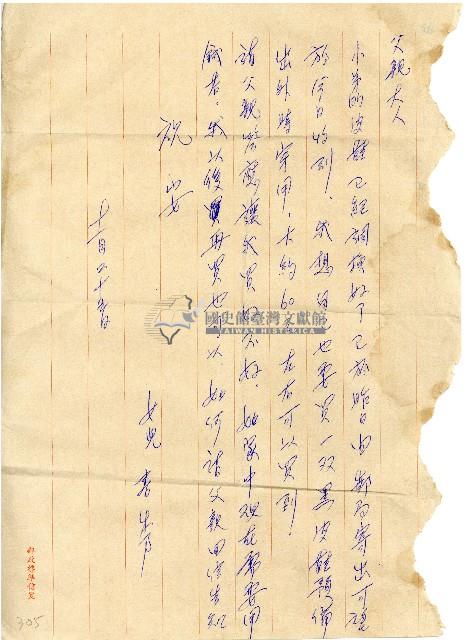 父親大人
小弟的皮鞋已經調換好了已於昨日由郵局寄出可望
於今日收到！我想自己也要買一双黑皮鞋預備
出外時穿用，大約60元左右可以買到！
請父親答應讓我買好不好，如家中現在需要用
錢者，我以後再買也可以，如何請父親回信告知
祝 安
女兒
十一月二十
國史館臺灣文獻館
TAIWAN HISTORICA
郵政標準信箋
305